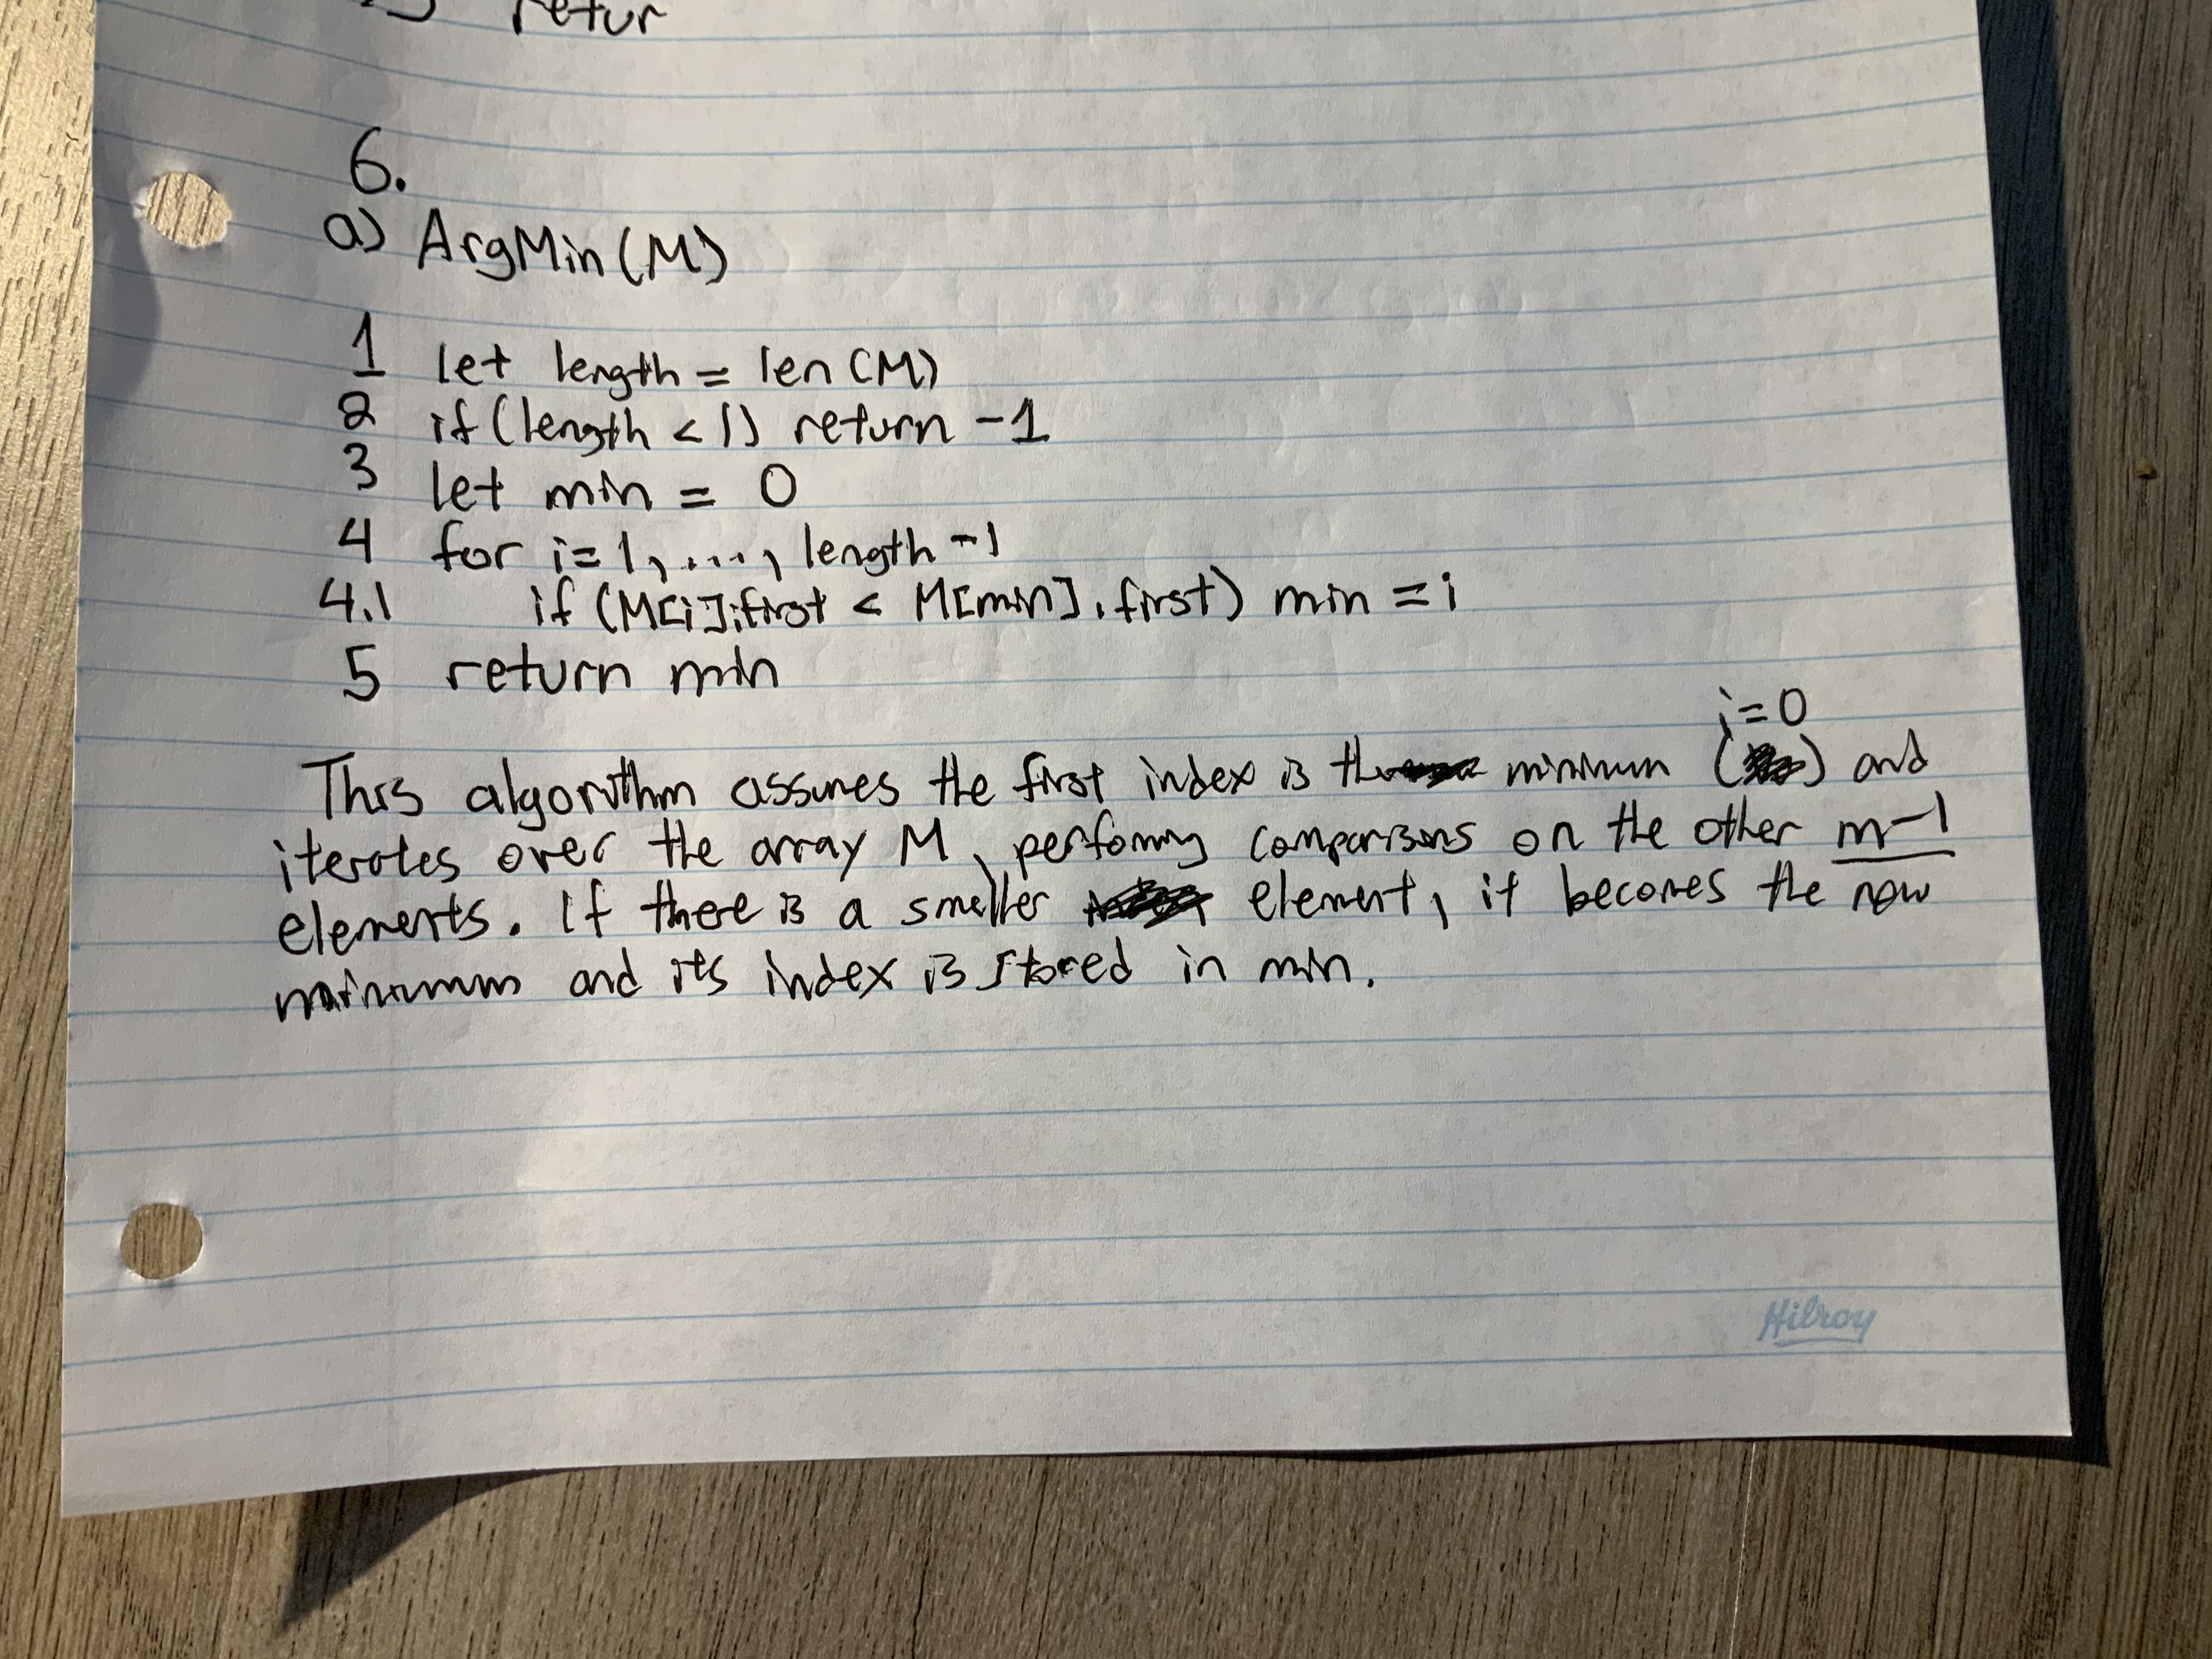 retur
6.
a) ArgMin(M)
1 let length = len(M)
2 if (length < 1) return -1
3 let min = 0
4 for i=1, ..., length -1
4.1 if (M[i].first < M[min].first) min = i
5 return min
i=0
This algorithm assumes the first index is the minimum ( ) and
iterates over the array M, performing comparisons on the other m-1
elements. If there is a smaller element, it becomes the new
minimum and its index is stored in min.
Hilroy